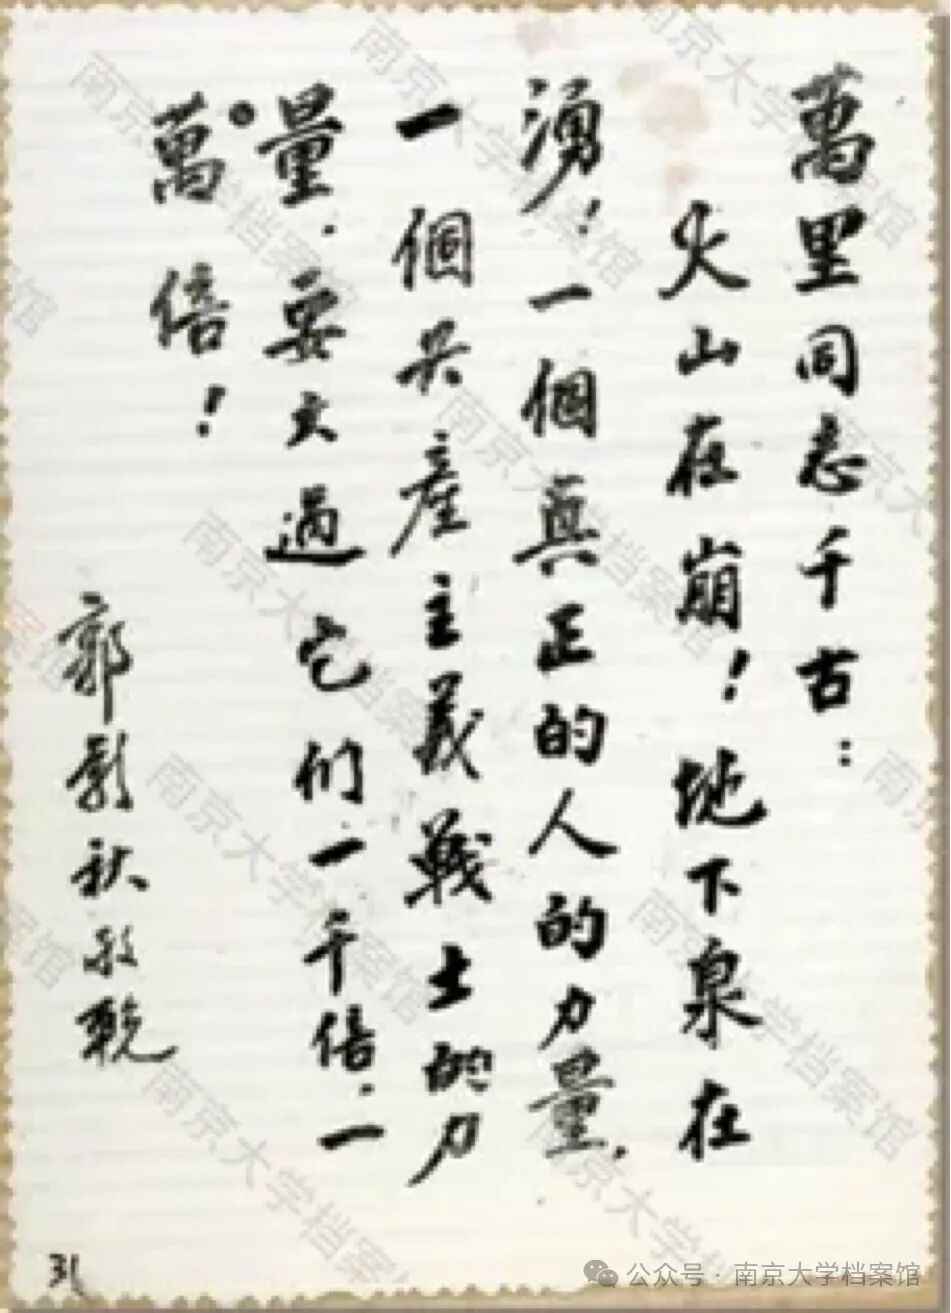 萬里同志千古：
火山在崩！地下泉在
湧！一個真正的人的力量，
一個共產主義戰士的力
量，要大過它們一千倍，一
萬倍！
郭影秋敬輓
31
公众号·南京大学档案馆
南京大学档案馆